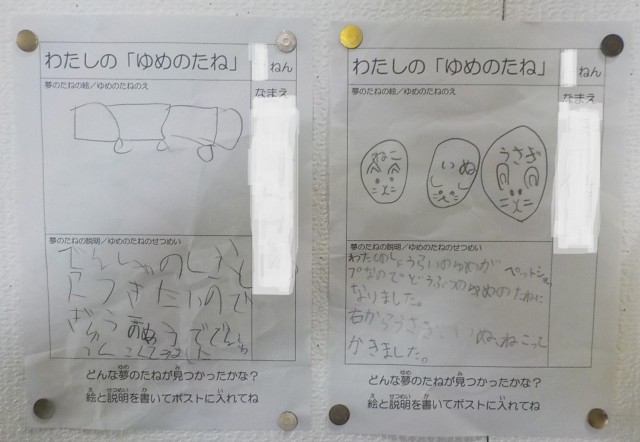 わたしの「ゆめのたね」
ねん
夢のたねの絵/ゆめのたねのえ
なまえ
夢のたねの説明/ゆめのたねのせつめい
でんしゃのしごと
につきたいので
どんな夢のたねが見つかったかな?
ゆめ
み
絵と説明を書いてポストに入れてね
え
せつめい
か
い
わたしの「ゆめのたね」
ねん
夢のたねの絵/ゆめのたねのえ
なまえ
ねこ
いぬ
うさぎ
夢のたねの説明/ゆめのたねのせつめい
わたしのしょうらいのゆめが ペットショッ
プなのでどうぶつのゆめのたねに
なりました。
右からうさぎ、いぬ、ねこって
かきました。
どんな夢のたねが見つかったかな?
ゆめ
み
絵と説明を書いてポストに入れてね
え
せつめい
か
い